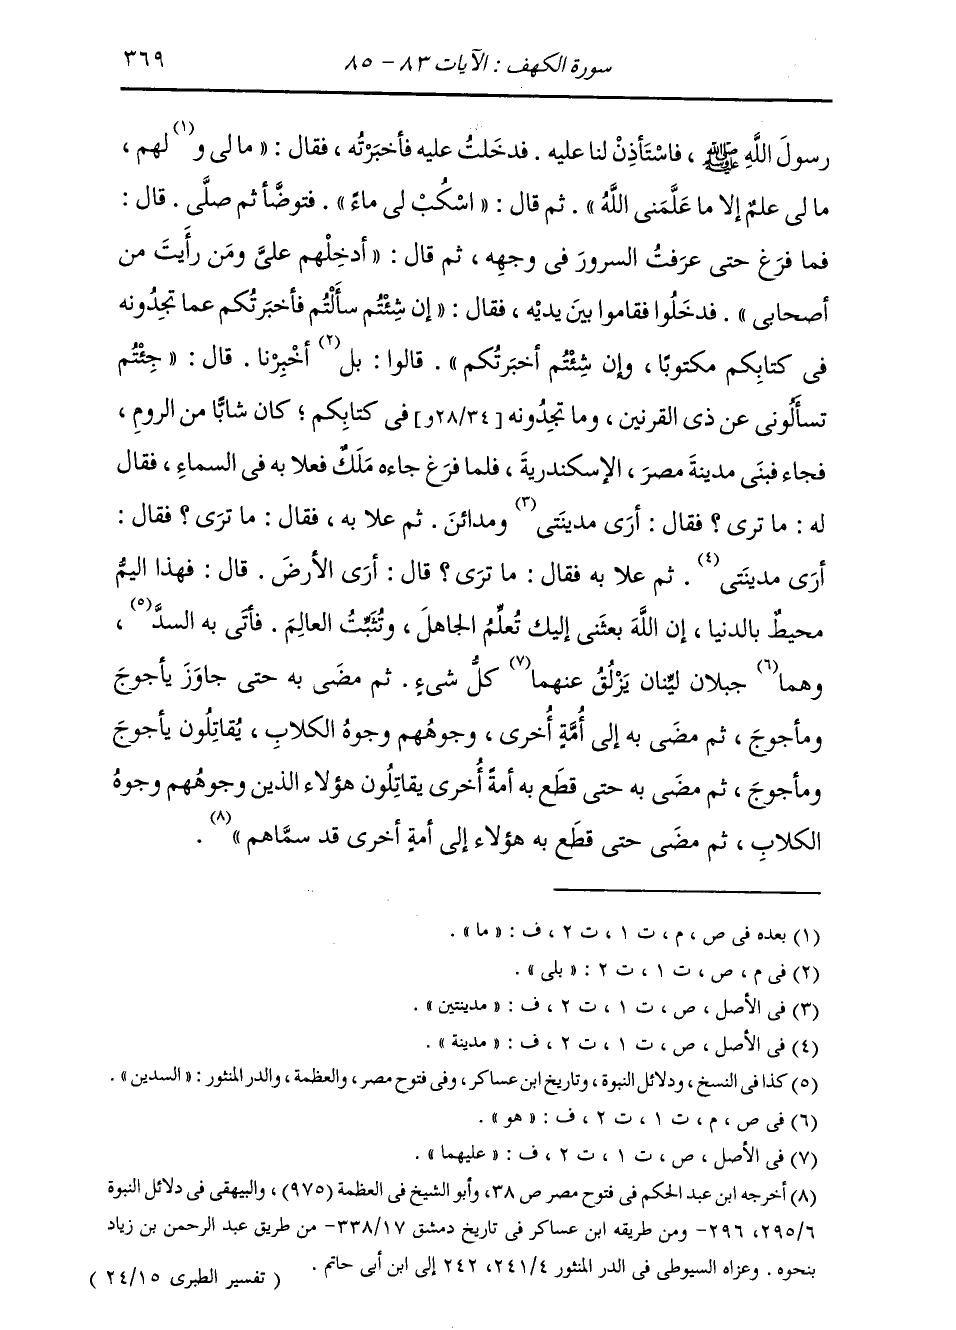 سورة الكهف : الآيات ٨٣ - ٨٥ ٣٦٩
رسولَ اللَّهِ ﷺ ، فاسْتَأذِنْ لنا عليه . فدخَلتُ عليه فأخبَرْتُه ، فقال : « ما لى و(١) لهم ،
ما لى علمٌ إلا ما عَلَّمَنى اللَّهُ » . ثم قال : « اسْكُبْ لى ماءً » . فتوضَّأ ثم صلَّى . قال :
فما فرَغ حتى عرَفتُ السرورَ فى وجهِه ، ثم قال : « أدخِلْهم علىَّ ومَن رأَيتَ من
أصحابى » . فدخَلُوا فقاموا بينَ يديْه ، فقال : « إن شِئْتُم سأَلْتُم فأخبَرتُكم عما تجدُونه
فى كتابِكم مكتوبًا ، وإن شِئْتُم أخبَرتُكم » . قالوا : بل(٢) أخْبِرْنا . قال : « جِئْتُم
تسأَلُونى عن ذى القرنين ، وما تجدُونه [٢٨/٣٤و] فى كتابِكم ؛ كان شابًّا من الرومِ ،
فجاء فبنَى مدينةَ مصرَ ، الإسكندريةَ ، فلما فرَغ جاءه مَلَكٌ فعلا به فى السماءِ ، فقال
له : ما ترى ؟ فقال : أرَى مدينَتى(٣) ومدائنَ . ثم علا به ، فقال : ما ترَى ؟ فقال :
أرَى مدينَتى(٤) . ثم علا به فقال : ما ترَى ؟ قال : أرَى الأرضَ . قال : فهذا اليمُّ
محيطٌ بالدنيا ، إن اللَّهَ بعثَنى إليك تُعلِّمُ الجاهلَ ، وتُثَبِّتُ العالِمَ . فأتَى به السدَّ(٥) ،
وهما(٦) جبلان ليِّنان يَزْلُقُ عنهما(٧) كلُّ شىءٍ . ثم مضَى به حتى جاوَزَ يأجوجَ
ومأجوجَ ، ثم مضَى به إلى أُمَّةٍ أُخرى ، وجوهُهم وجوهُ الكلابِ ، يُقاتِلُون يأجوجَ
ومأجوجَ ، ثم مضَى به حتى قطَع به أمةً أُخرى يقاتِلُون هؤلاء الذين وجوهُهم وجوهُ
الكلابِ ، ثم مضَى حتى قطَع به هؤلاء إلى أمةٍ أخرى قد سمَّاهم »(٨) .
(١) بعده فى ص ، م ، ت ١ ، ت ٢ ، ف : « ما » .
(٢) فى م ، ص ، ت ١ ، ت ٢ : « بلى » .
(٣) فى الأصل ، ص ، ت ١ ، ت ٢ ، ف : « مدينتين » .
(٤) فى الأصل ، ص ، ت ١ ، ت ٢ ، ف : « مدينة » .
(٥) كذا فى النسخ ، ودلائل النبوة ، وتاريخ ابن عساكر ، وفى فتوح مصر ، والعظمة ، والدر المنثور : « السدين » .
(٦) فى ص ، م ، ت ١ ، ت ٢ ، ف : « هو » .
(٧) فى الأصل ، ص ، ت ١ ، ت ٢ ، ف : « عليهما » .
(٨) أخرجه ابن عبد الحكم فى فتوح مصر ص ٣٨ ، وأبو الشيخ فى العظمة (٩٧٥) ، والبيهقى فى دلائل النبوة
٢٩٥/٦ ، ٢٩٦ - ومن طريقه ابن عساكر فى تاريخ دمشق ٣٣٨/١٧ - من طريق عبد الرحمن بن زياد
بنحوه . وعزاه السيوطى فى الدر المنثور ٢٤١/٤ ، ٢٤٢ إلى ابن أبى حاتم .
( تفسير الطبرى ٢٤/١٥ )